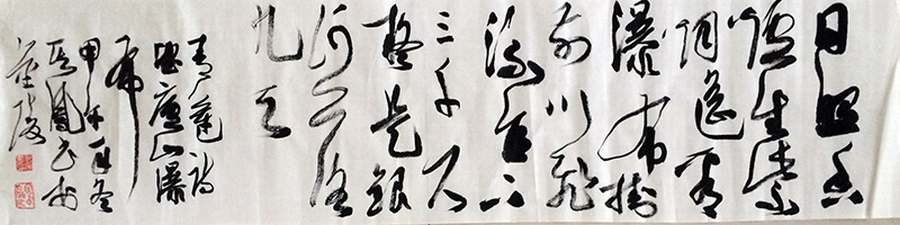 日照香
炉生紫
烟遥看
瀑布挂
前川飞
流直下
三千尺
疑是银
河落
九天
青莲诗
望庐山瀑
布
甲午年冬